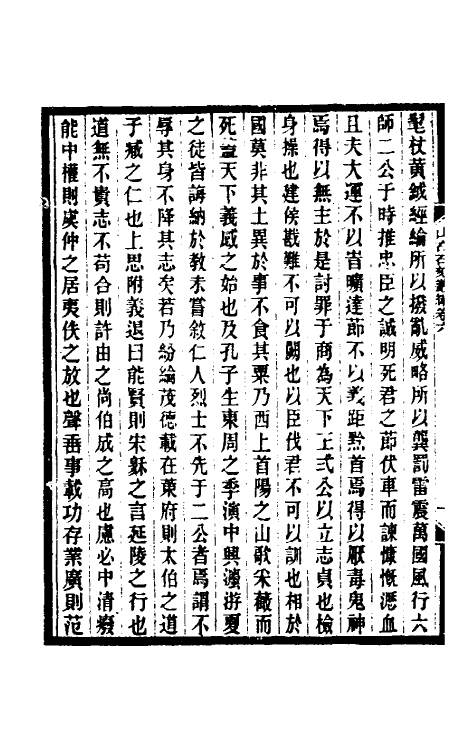 聖杖黃鉞經綸所以撥亂威略所以龔罰雷震萬國風行六
師二公于時推忠臣之誠明死君之節伏車而諫慷慨瀝血
且夫大運不以眚曠達節不以義距黔首焉得以厭毒鬼神
焉得以無主於是討罪于商為天下王式公以立志貞也檢
身操也建侯戡難不可以闕也以臣伐君不可以訓也相於
國莫非其土異於事不食其粟乃西上首陽之山歌采薇而
死蓋天下義感之始也及孔子生東周之季演中興瀍游夏
之徒皆誨納於教未嘗敘仁人烈士不先于二公者焉謂不
辱其身不降其志矣若乃紛綸茂德載在策府則太伯之道
子臧之仁也上思附義退曰能賢則宋穌之言延陵之行也
道無不貴志不苟合則許由之尚伯成之高也慮必中清癈
能中權則虞仲之居夷佚之放也聲垂事載功存業廣則范
山右石刻叢編卷六